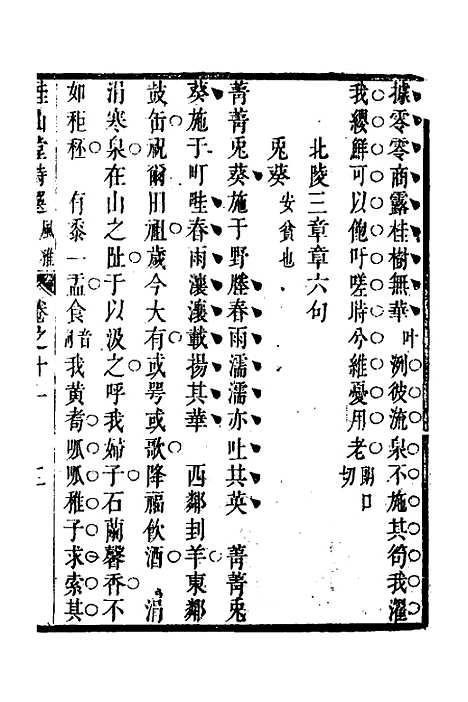 據零零商露桂樹無華叶洌彼流泉不施其笱我濯
我纓鮮可以飽吁嗟牂兮維憂用老朗口切
北陵三章章六句
兎葵安貧也
菁菁兎葵施于野壓春雨濡濡亦吐其英　菁菁兎
葵施于町畦春雨瀼瀼載揚其華　西鄰刲羊東鄰
鼓缶祝爾田祖歲今大有或咢或歌降福飲酒　涓
涓寒泉在山之阯于以汲之呼我婦子石蘭馨香不
如秬秠　有黍一盂食音我黃耈呱呱稚子求索其
桂山堂詩選　風雅　卷之十一　三